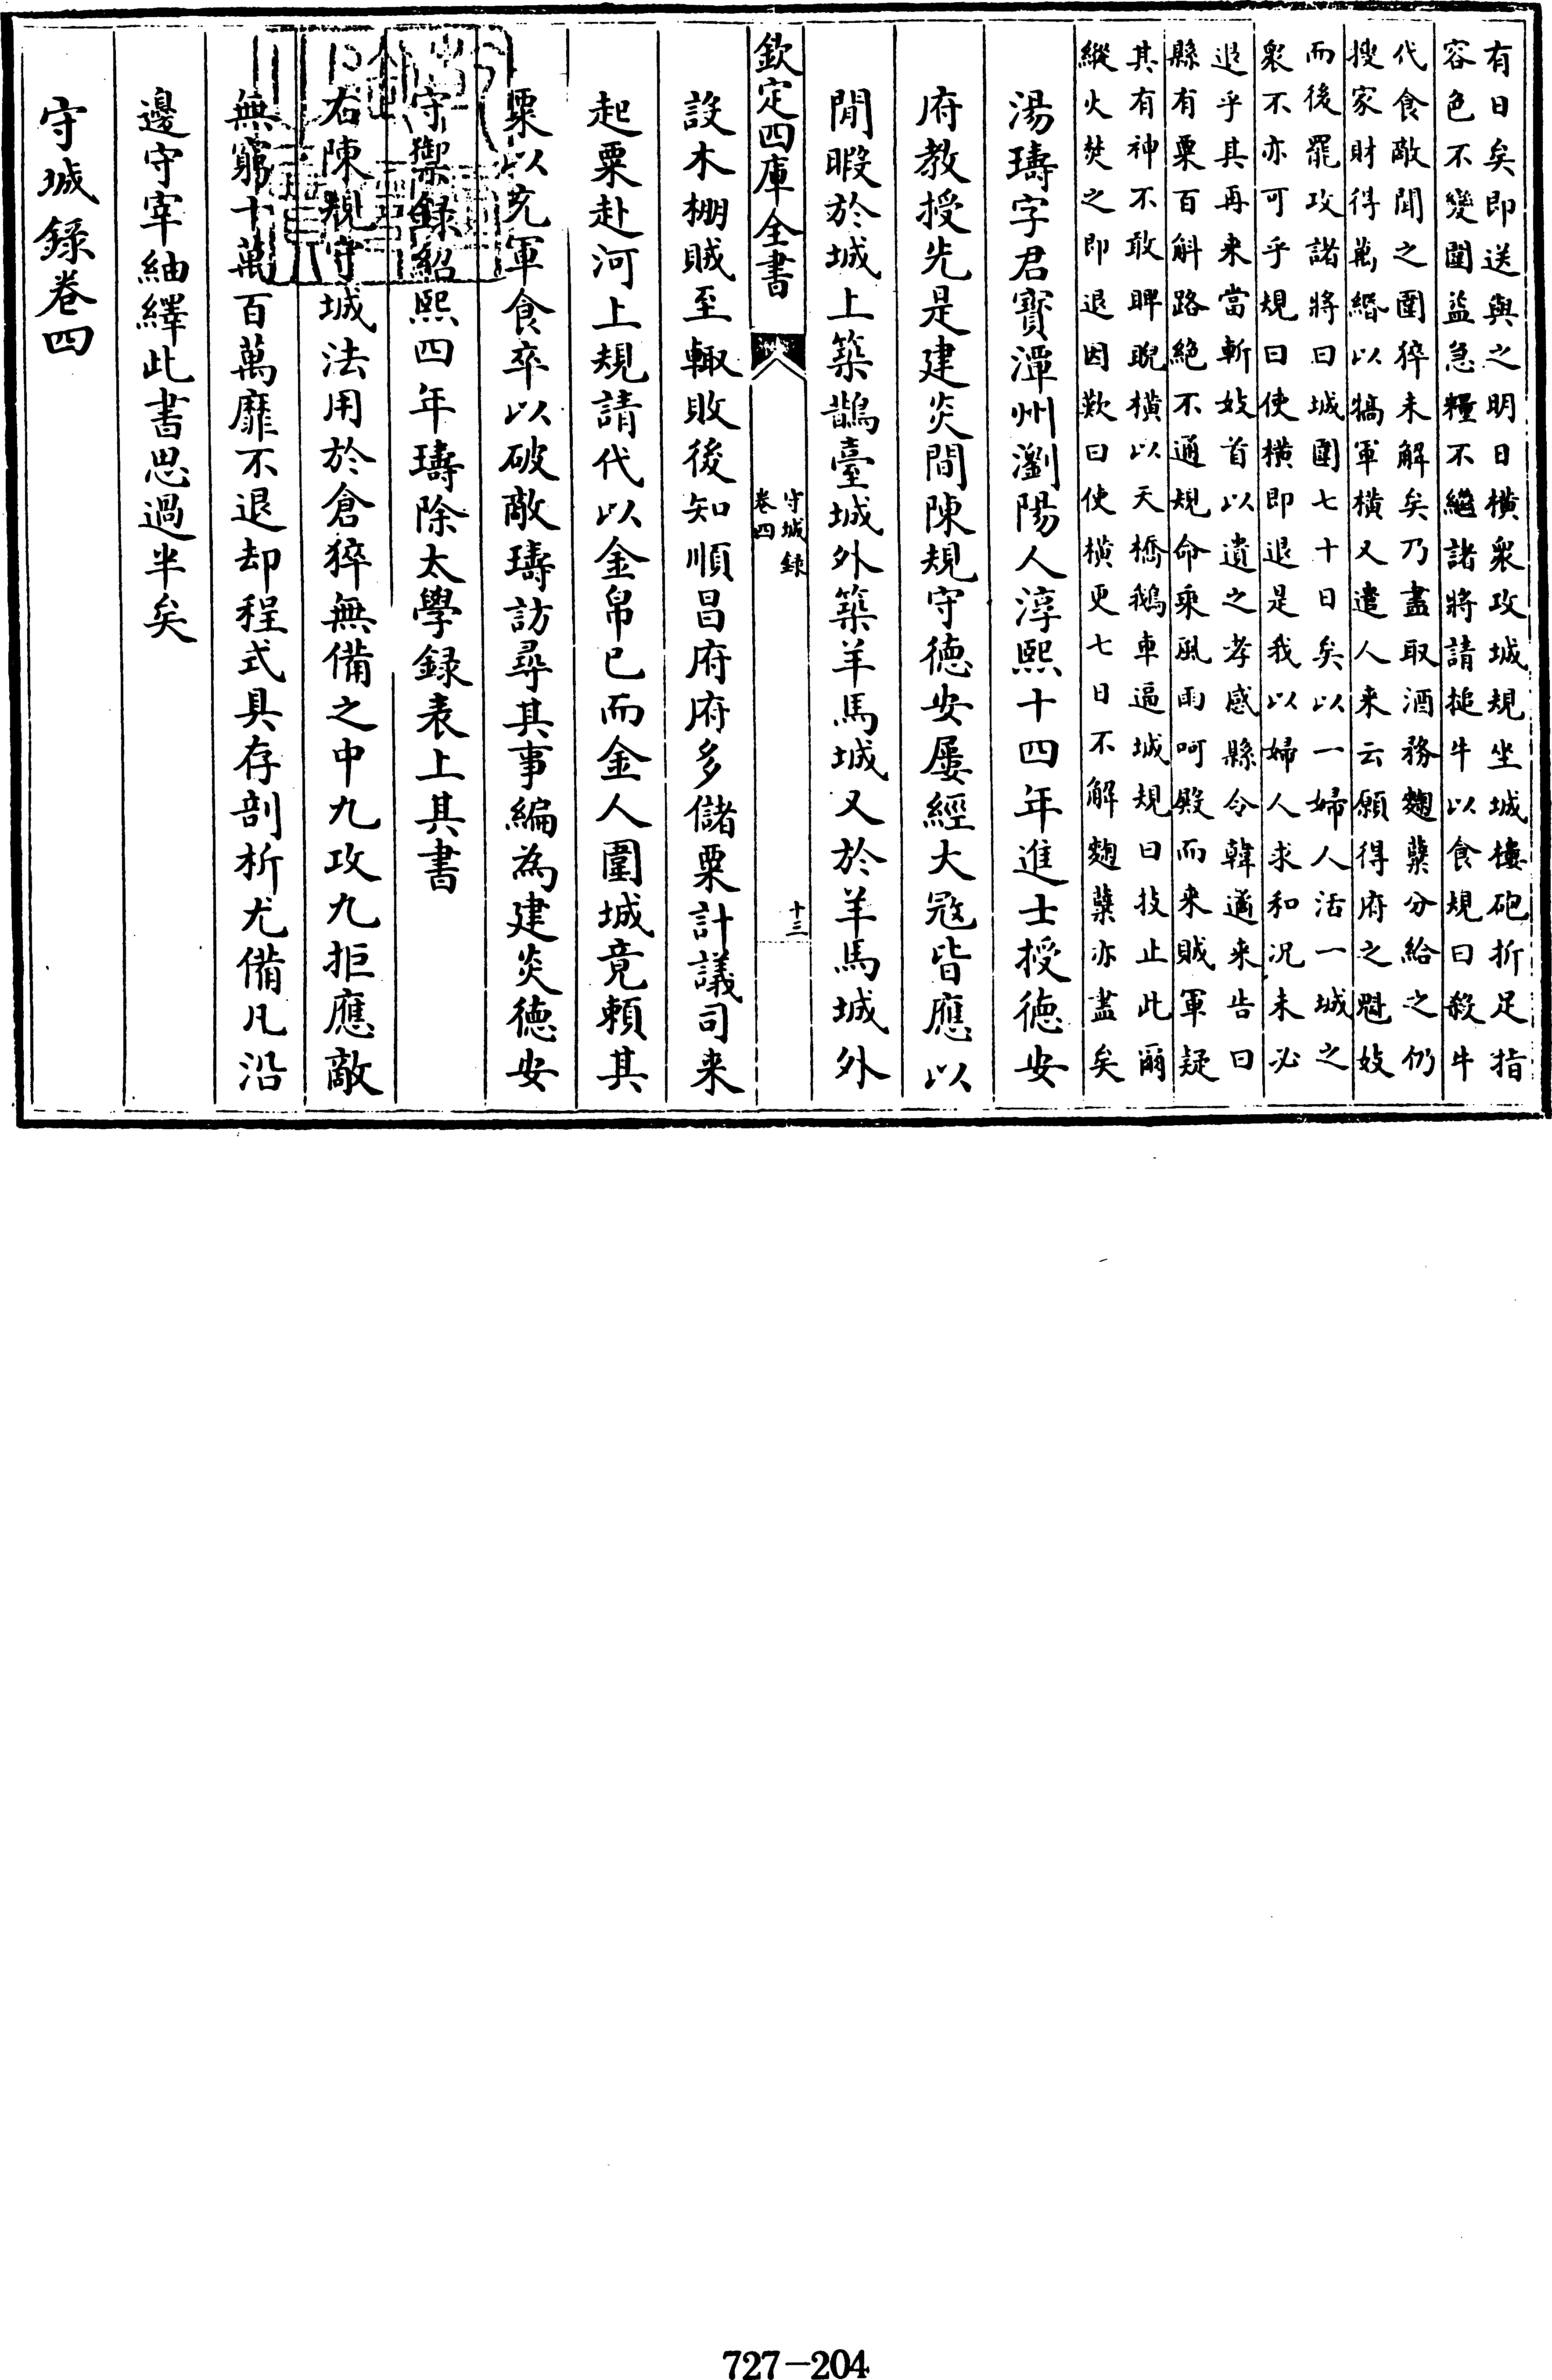 有日矣即送與之明日橫衆攻城規坐城樓砲折足指
容色不變圍益急糧不繼諸將請搥牛以食規曰殺牛
代食敵聞之圍猝未解矣乃盡取酒務麴糵分給之仍
搜家財得萬緡以犒軍橫又遣人來云願得府之魁妓
而後罷攻諸將曰城圍七十日矣以一婦人活一城之
衆不亦可乎規曰使橫即退是我以婦人求和況未必
退乎其再來當斬妓首以遺之孝感縣令韓遹來告曰
縣有粟百斛路絶不通規命乘風雨呵殿而來賊軍疑
其有神不敢睥睨橫以天橋鵝車逼城規曰技止此爾
縱火焚之即退因歎曰使橫更七日不解麴糵亦盡矣
湯璹字君寳潭州瀏陽人淳熙十四年進士授德安
府教授先是建炎間陳規守德安屢經大寇皆應以
閒暇於城上築鵲臺城外築羊馬城又於羊馬城外
欽定四庫全書
守城錄
卷四
十三
設木柵賊至輙敗後知順昌府府多儲粟計議司来
起粟赴河上規請代以金帛已而金人圍城竟賴其
粟以充軍食卒以破敵璹訪尋其事編為建炎德安
守禦録紹熙四年璹除太學録表上其書
右陳規守城法用於倉猝無備之中九攻九拒應敵
無窮十萬百萬靡不退却程式具存剖析尤備凡沿
邊守宰紬繹此書思過半矣
守城錄卷四
727-204